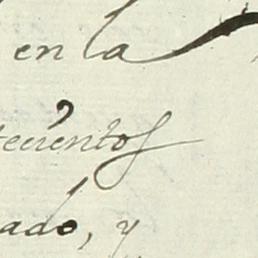 en la
tecientos
ado, y